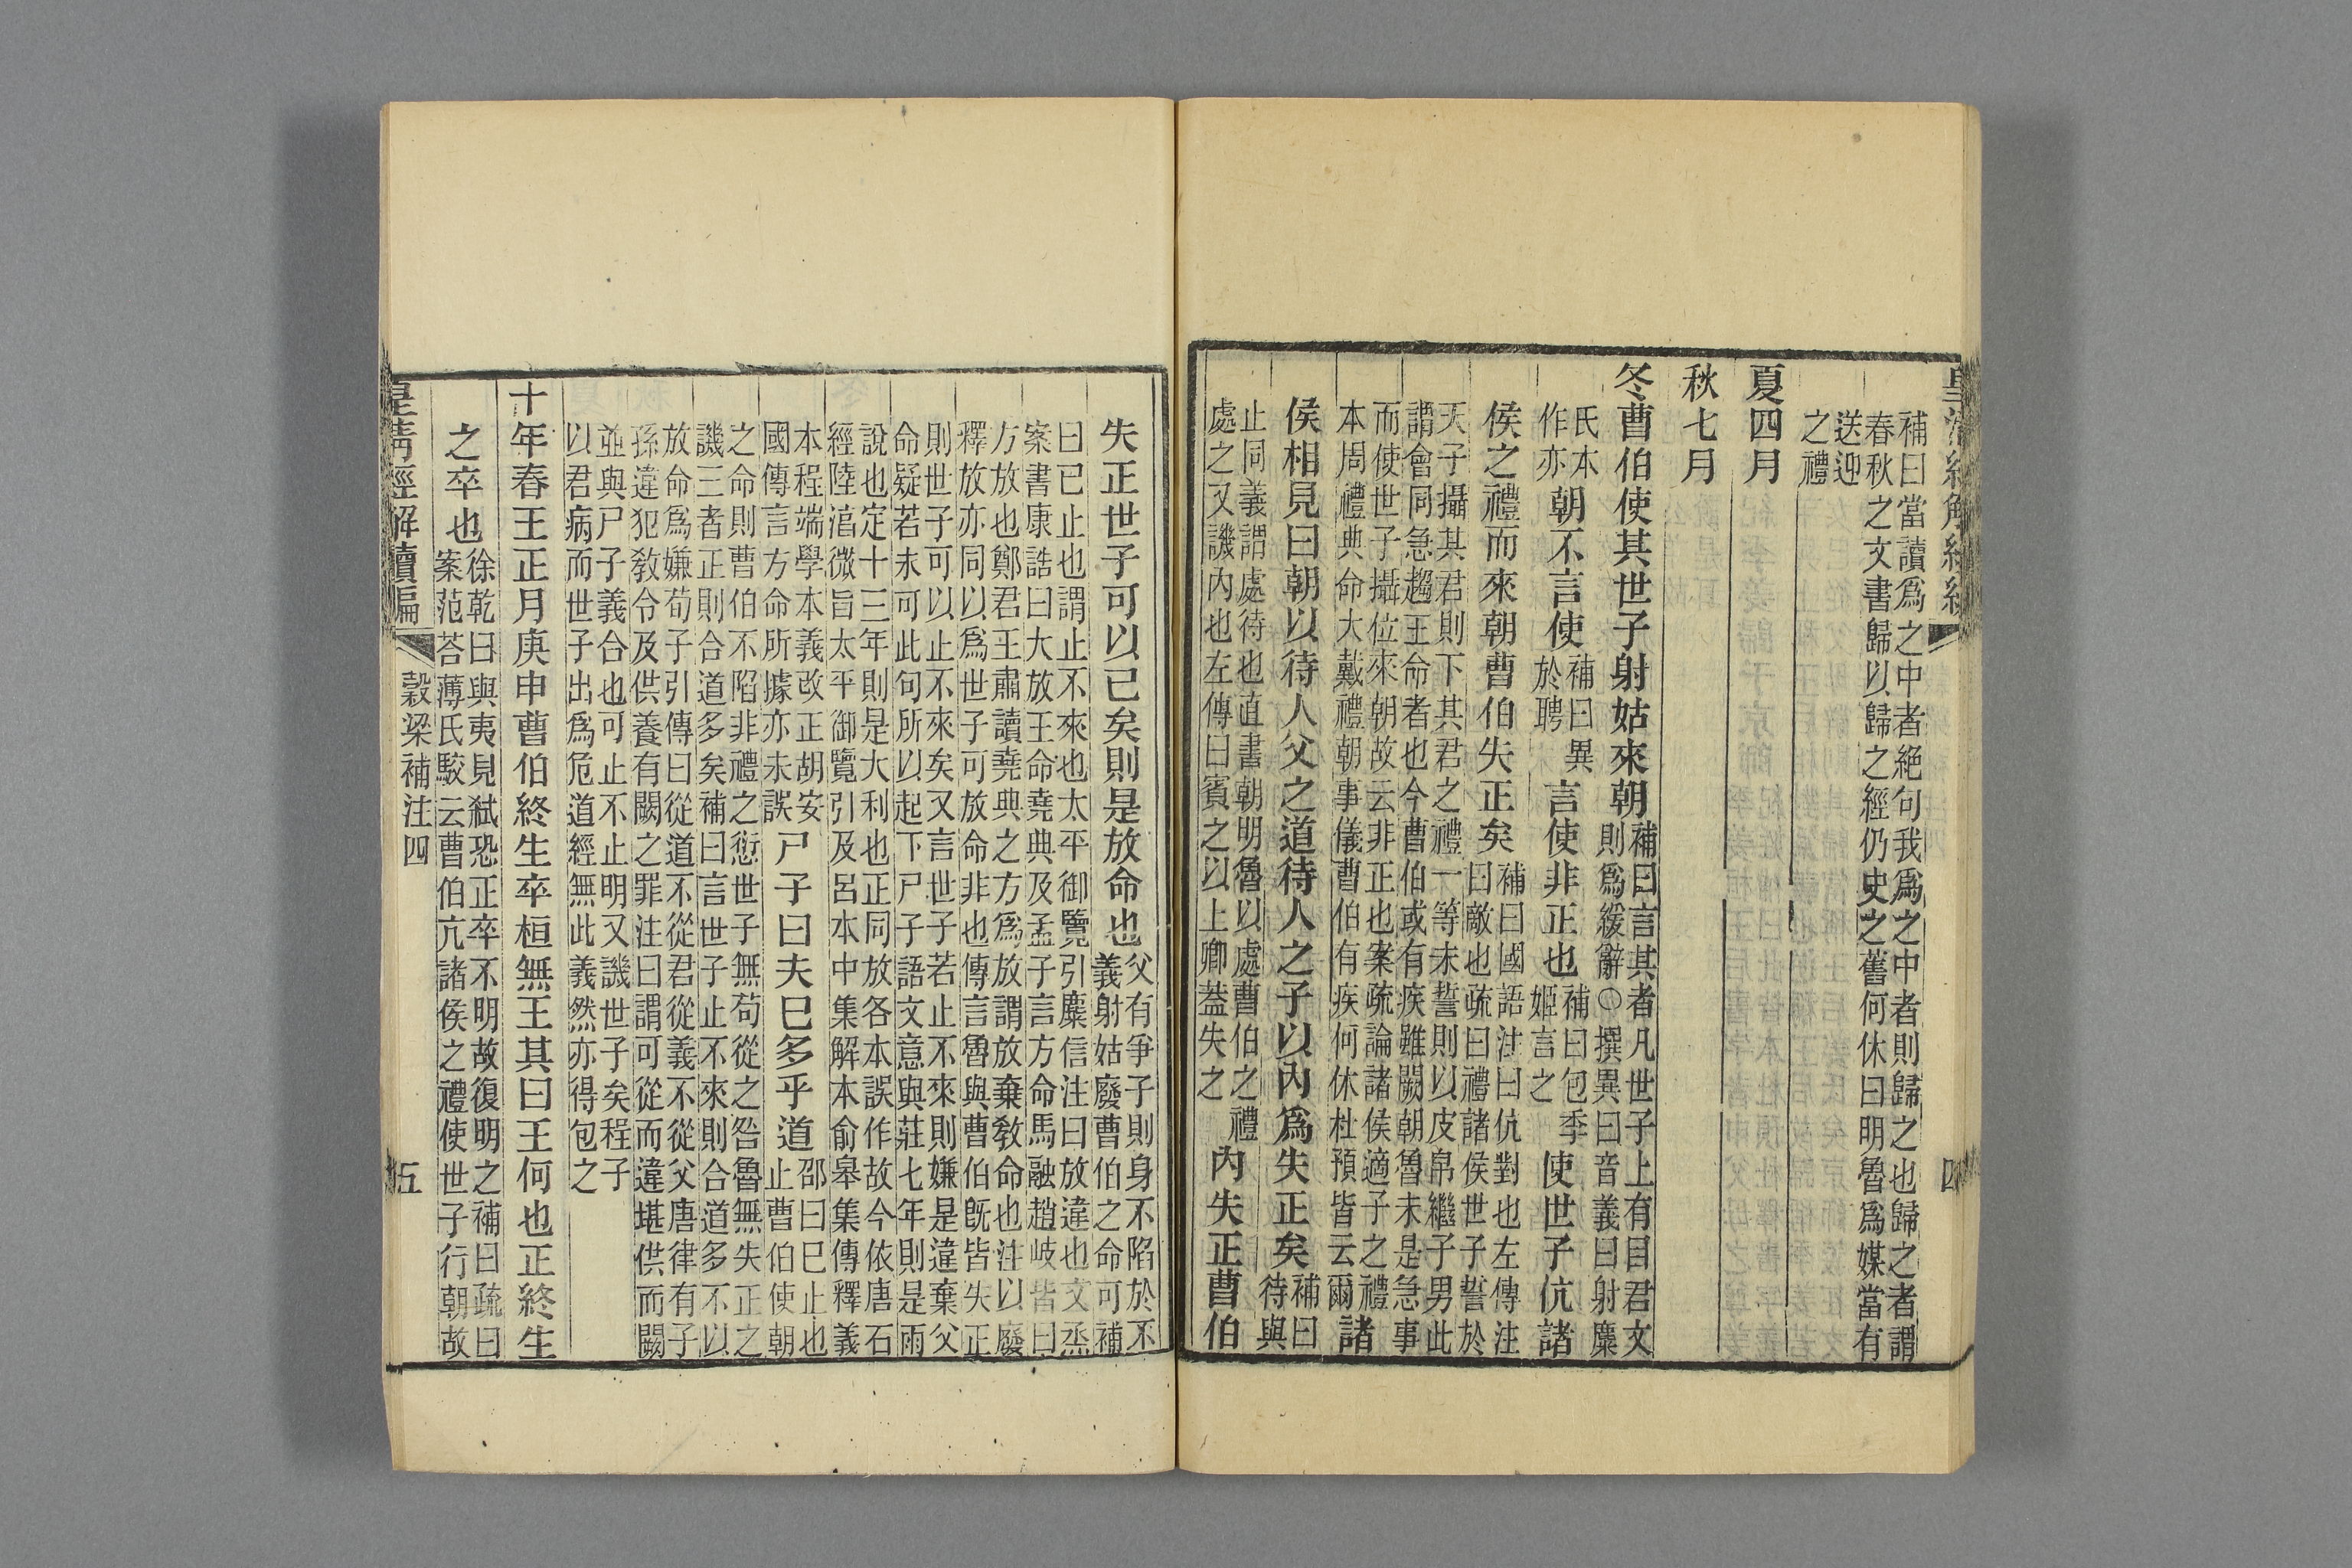 補曰當讀爲之中者絕句我爲之中者則歸之也歸之者謂
春秋之文書歸以歸之經仍史之舊何休曰明魯爲媒當有
送迎
之禮
夏四月
秋七月
冬曹伯使其世子射姑來朝補曰言其者凡世子上有目君文
則爲緩辭○撰異曰音義曰射麋
氏本
作亦
朝不言使補曰異
於聘
言使非正也補曰包季
姬言之
使世子伉諸
侯之禮而來朝曹伯失正矣補曰國語注曰伉對也左傳注
曰敵也疏曰禮諸侯世子誓於
天子攝其君則下其君之禮一等未誓則以皮帛繼子男此
謂會同急趨王命者也今曹伯或有疾雖闕朝魯未是急事
而使世子攝位來朝故云非正也案疏論諸侯適子之禮
本周禮典命大戴禮朝事儀曹伯有疾何休杜預皆云爾
諸
侯相見曰朝以待人父之道待人之子以內爲失正矣補曰
待與
止同義謂處待也直書朝明魯以處曹伯之禮
處之又譏內也左傳曰賓之以上卿葢失之
內失正曹伯
失正世子可以已矣則是放命也父有爭子則身不陷於不
義射姑廢曹伯之命可補
曰已止也謂止不來也太平御覽引麋信注曰放違也文烝
案書康誥曰大放王命堯典及孟子言方命馬融趙岐皆曰
方放也鄭君王肅讀堯典之方爲放謂放棄敎命也注以廢
釋放亦同以爲世子可放命非也傳言魯與曹伯旣皆失正
則世子可以止不來矣又言世子若止不來則嫌是違棄父
命疑若未可此句所以起下尸子語文意與莊七年則是雨
說也定十三年則是大利也正同放各本誤作故今依唐石
經陸㳷微旨太平御覽引及呂本中集解本俞皋集傳釋義
本程端學本義改正胡安
國傳言方命所據亦未誤
尸子曰夫已多乎道邵曰已止也
止曹伯使朝
之命則曹伯不陷非禮之愆世子無苟從之咎魯無失正之
譏三者正則合道多矣補曰言世子止不來則合道多不以
放命爲嫌荀子引傳曰從道不從君從義不從父唐律有子
孫違犯敎令及供養有闕之罪注曰謂可從而違堪供而闕
並與尸子義合也可止不止明又譏世子矣程子
以君病而世子出爲危道經無此義然亦得包之
十年春王正月庚申曹伯終生卒桓無王其曰王何也正終生
之卒也徐乾曰與夷見弒恐正卒不明故復明之補曰疏曰
案范荅薄氏駮云曹伯亢諸侯之禮使世子行朝故
皇清經解續編
穀梁補注四
五